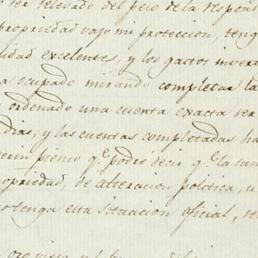 ser relevado del peso de la respons
propriedad vajo mi proteccion, teng
lidad excelentes, y los gastos
a ocupado mirando completar la
ordenado una cuenta exacta ser
dras, y las cuentas completadas ha
premo q.e podré decir q.e la
opriedad, de alteracion politica, u
otenga esta situacion oficial, se